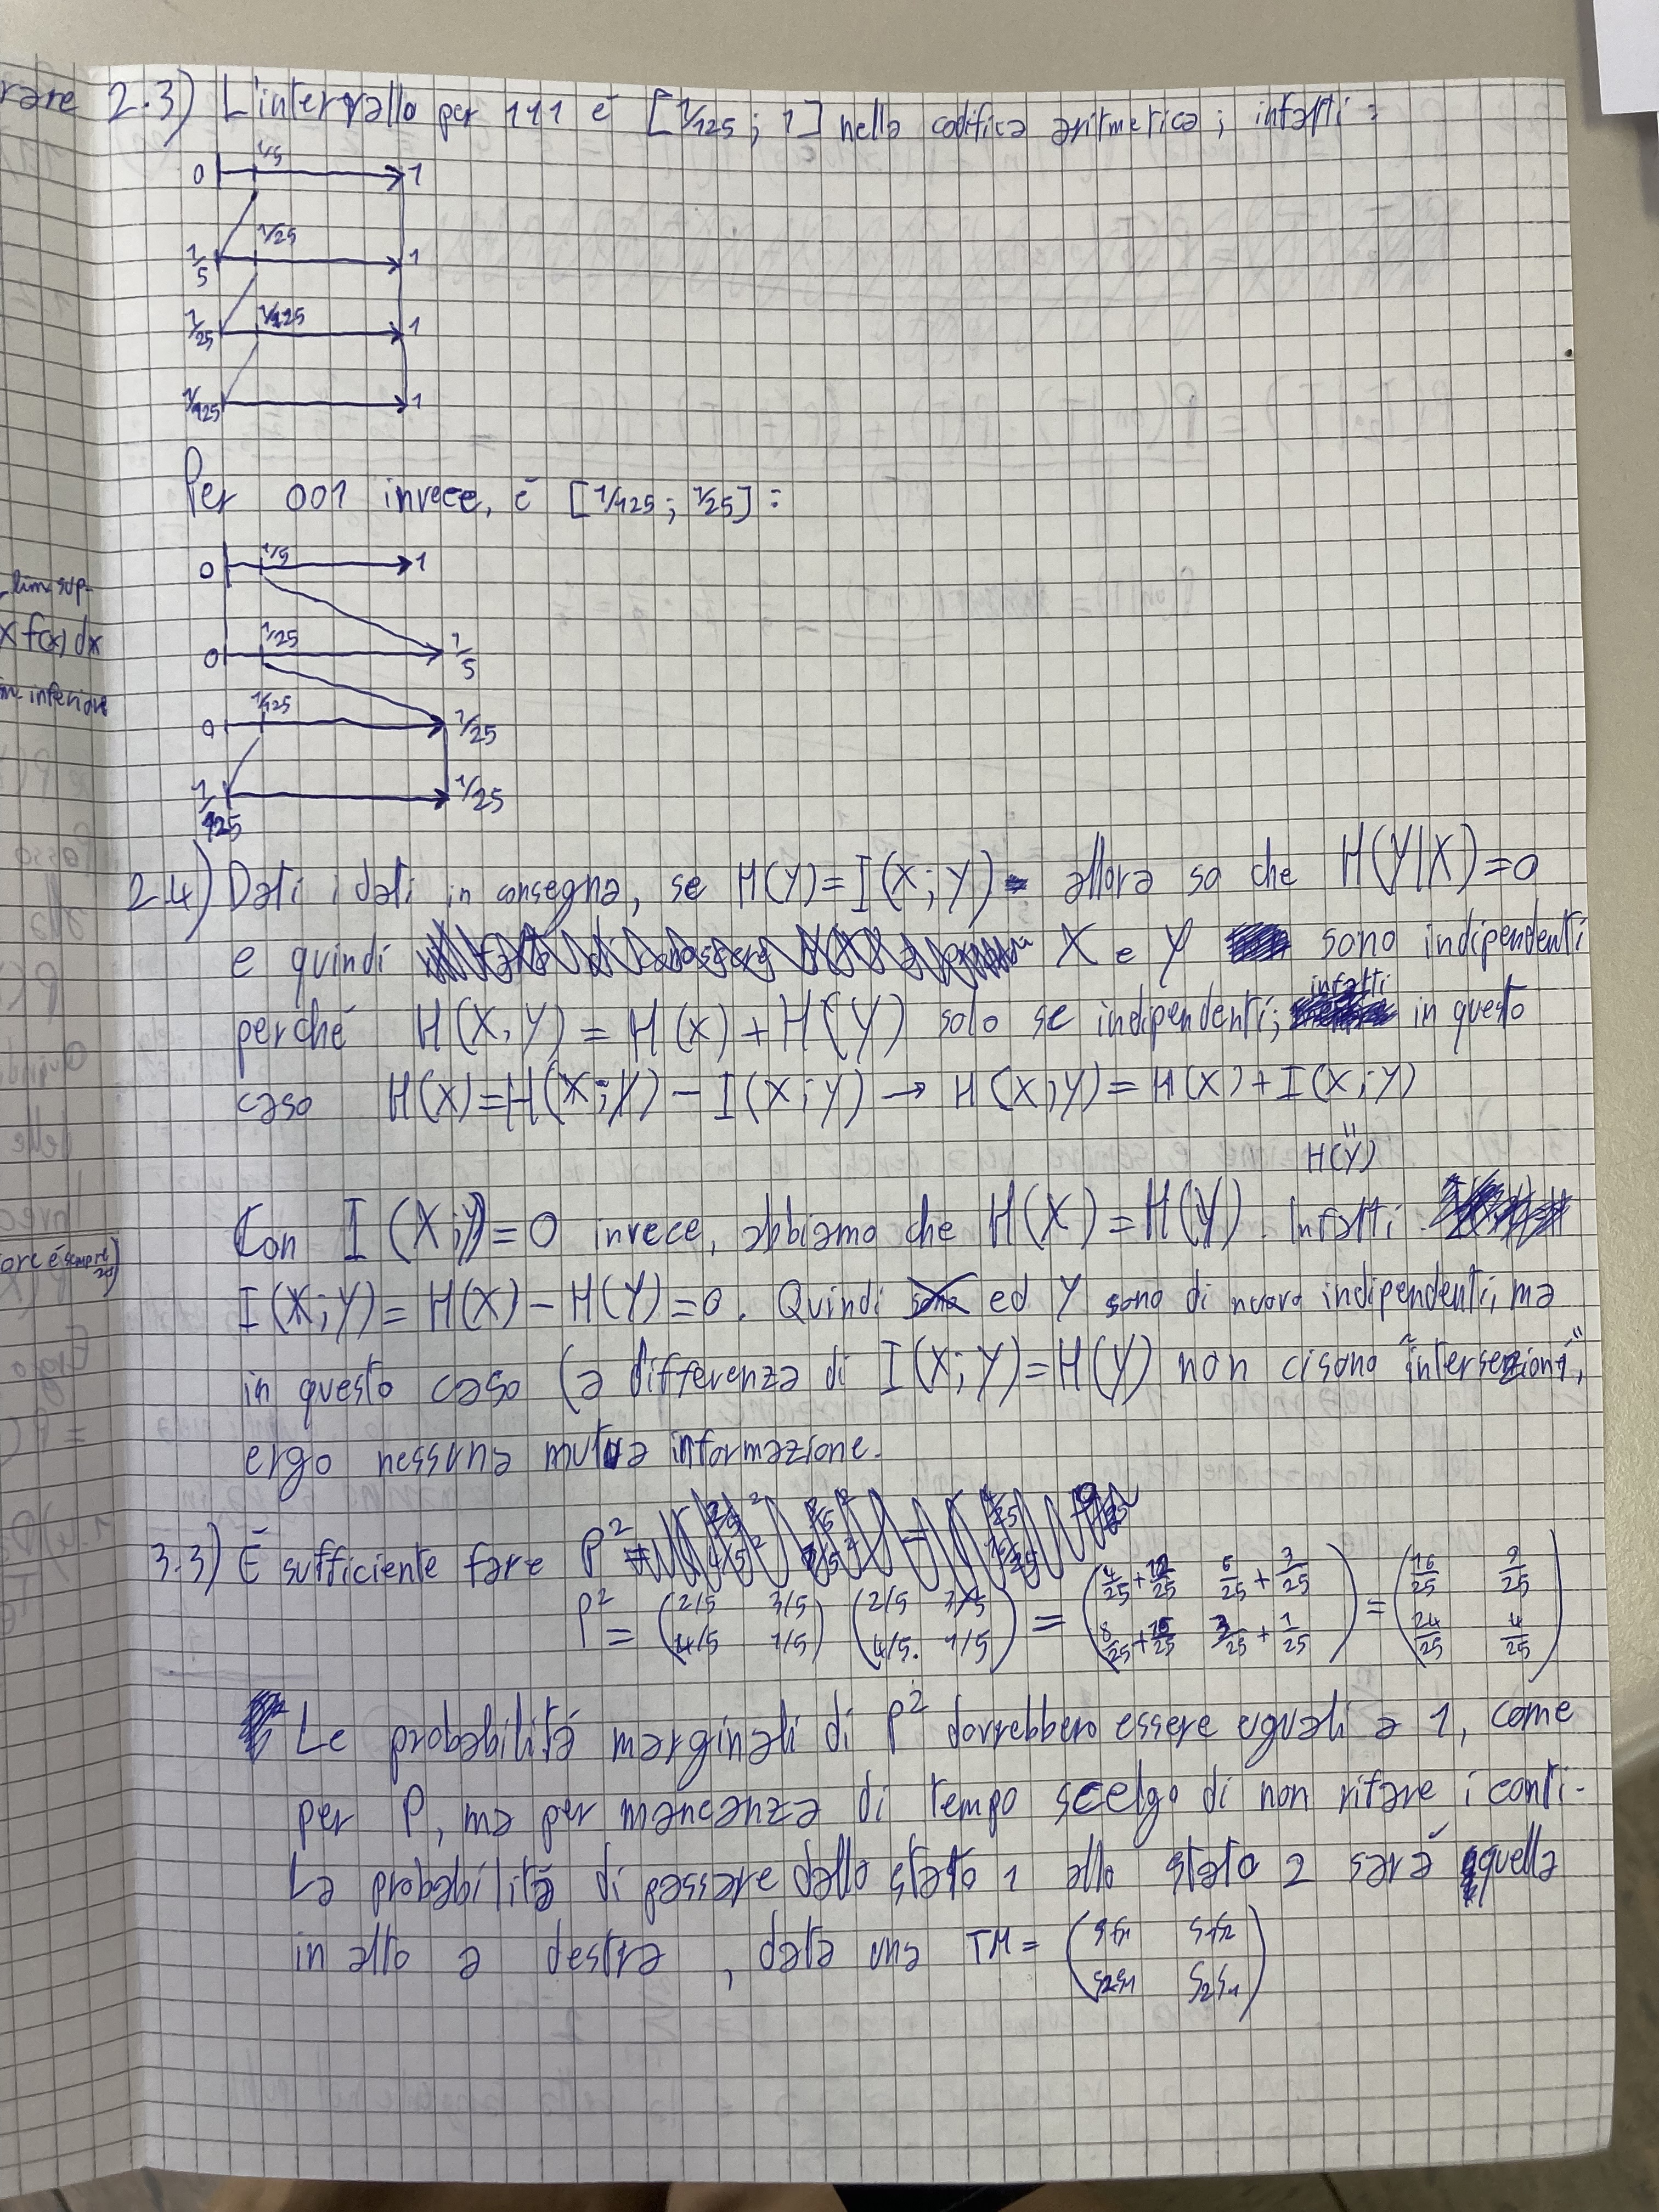 rare
2.3) L'intervallo per 111 è [1/125; 1] nella codifica aritmetica; infatti:
0 1/5 1
1/5 1/25 1
1/25 1/125 1
1/125 1
Per 001 invece, è [1/125; 1/25]:
0 1/5 1
lim. sup.
x f(x) dx
0 1/25 1/5
m. inferiore
0 1/125 1/25
1/125 1/25
2.4) Dati i dati in consegna, se H(Y)=I(X;Y) allora so che H(Y|X)=0
e quindi X e Y sono indipendenti
perché H(X,Y) = H(X)+H(Y) solo se indipendenti; infatti in questo
caso H(X)=H(X;Y)-I(X;Y) → H(X,Y)=H(X)+I(X;Y)
"
H(Y)
Con I(X;Y)=0 invece, abbiamo che H(X)=H(Y). Infatti
ore è sempre
I(X;Y)= H(X)-H(Y)=0. Quindi ed Y sono di nuovo indipendenti, ma
in questo caso (a differenza di I(X;Y)=H(Y) non ci sono "intersezioni",
ergo nessuna mutua informazione.
3.3) È sufficiente fare P²
P² = (2/5 3/5) (2/5 3/5) = (4/25+12/25 6/25+3/25) = (16/25 9/25)
(4/5 1/5) (4/5. 1/5) (8/25+16/25 3/25+1/25) (24/25 4/25)
Le probabilità marginali di P² dovrebbero essere uguali a 1, come
per P, ma per mancanza di tempo scelgo di non rifare i conti.
La probabilità di passare dallo stato 1 allo stato 2 sarà quella
in alto a destra, data una TM = (S1S1 S1S2)
(S2S1 S2S1)